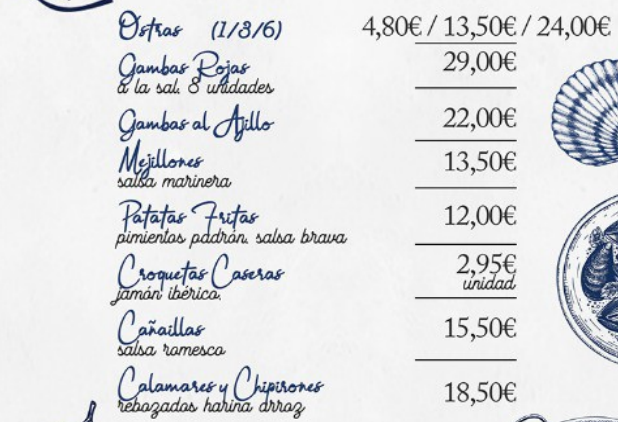 Ostras (1/3/6) 4,80€ / 13,50€ / 24,00€
Gambas Rojas 29,00€
a la sal, 8 unidades
Gambas al Ajillo 22,00€
Mejillones 13,50€
salsa marinera
Patatas Fritas 12,00€
pimientos padrón, salsa brava
Croquetas Caseras 2,95€
jamón ibérico, unidad
Cañaillas 15,50€
salsa romesco
Calamares y Chipirones 18,50€
rebozados harina arroz